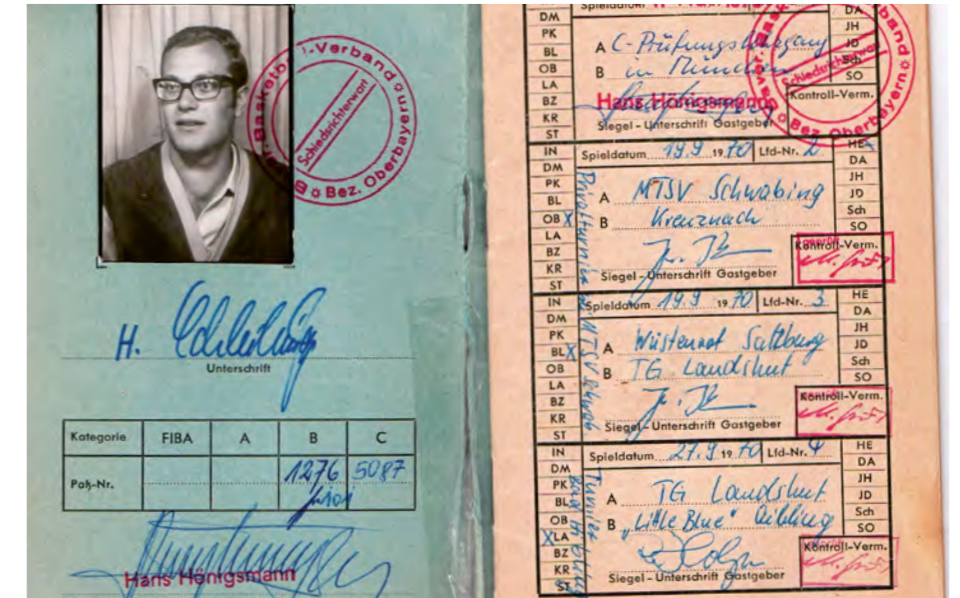 Bayer. Basketb.-Verband
Schiedsrichterwart
Bez. Oberbayern
H.
Unterschrift
Kategorie FIBA A B C
Paß-Nr. 1276 5087
Hans Hönigsmann
DM
PK
BL
OB
LA
BZ
KR
ST
Spieldatum
A C-Prüfungslehrgang
B in München
Hans Hönigsmann
Siegel - Unterschrift Gastgeber
DA
JH
JD
Sch
SO
Kontroll-Verm.
Schiedsrichterwart
Bez. Oberbayern
IN
DM
PK
BL
OB X
LA
BZ
KR
ST
Spieldatum 19.9 1970 Lfd-Nr. 2
A MTSV Schwabing
B Kreuznach
Siegel - Unterschrift Gastgeber
HE
DA
JH
JD
Sch
SO
Kontroll-Verm.
geprüft
Privatturnier des MTSV Schwab
IN
DM
PK
BL X
OB
LA
BZ
KR
ST
Spieldatum 19.9 1970 Lfd-Nr. 3
A Wüstenrot Salzburg
B TG Landshut
Siegel - Unterschrift Gastgeber
HE
DA
JH
JD
Sch
SO
Kontroll-Verm.
IN
DM
PK
BL
OB
X LA
BZ
KR
ST
Spieldatum 27.9 1970 Lfd-Nr. 4
A TG Landshut
B "Little Blue" Aibling
Siegel - Unterschrift Gastgeber
HE
DA
JH
JD
Sch
SO
Kontroll-Verm.
Turnier